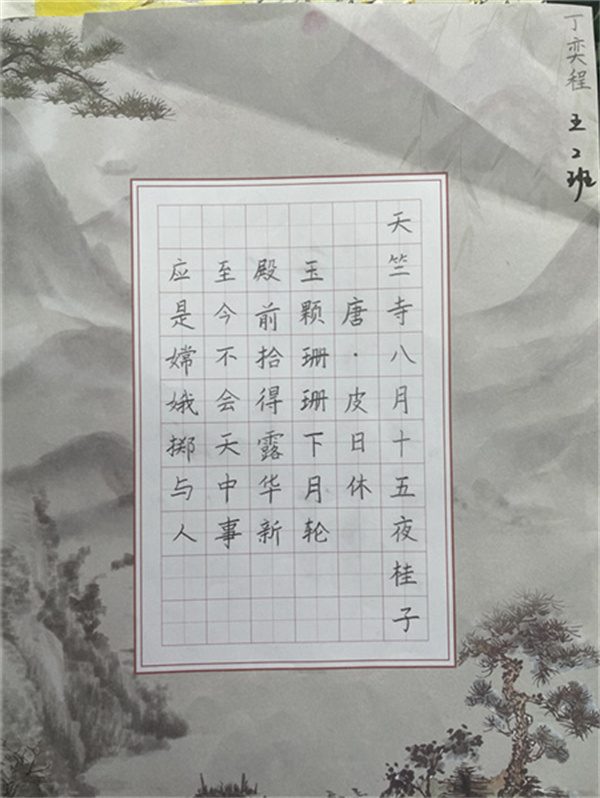 丁奕程
王2班
天竺寺八月十五夜桂子
唐·皮日休
玉颗珊珊下月轮
殿前拾得露华新
至今不会天中事
应是嫦娥掷与人